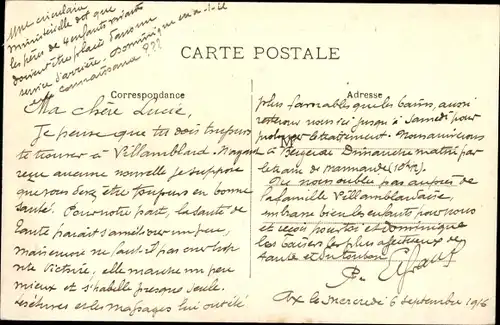 Une circulaire
ministerielle dit que
les pères de 4 enfants vivants
doivent être placés dans un
service d'arrière. Dominique en a-t-il
connaissance ???
CARTE POSTALE
Correspondance
Adresse
M
Ma chère Lucie,
Je pense que tu dois toujours
te trouver à Villamblard. N'ayant
reçu aucune nouvelle je suppose
que vous devez être toujours en bonne
santé. Pour notre part, la santé de
tante paraît s'améliorer un peu,
mais encore ne faut-il pas crier trop
vite Victoire, elle marche un peu
mieux et s'habille presque seule.
les massages lui ont été
plus favorables que les bains, aussi
resterons nous ici jusqu'à Samedi pour
prolonger le traitement. Nous arriverons
à Bergerac Dimanche matin par
le train de Marmande (10h12).
Ne nous oublie pas auprès de
la famille Villamblardaise,
embrasse bien les enfants pour nous
et reçois pour toi et Dominique
les baisers les plus affectueux de
tante et du tonton.
Dax le Mercredi 6 septembre 1916